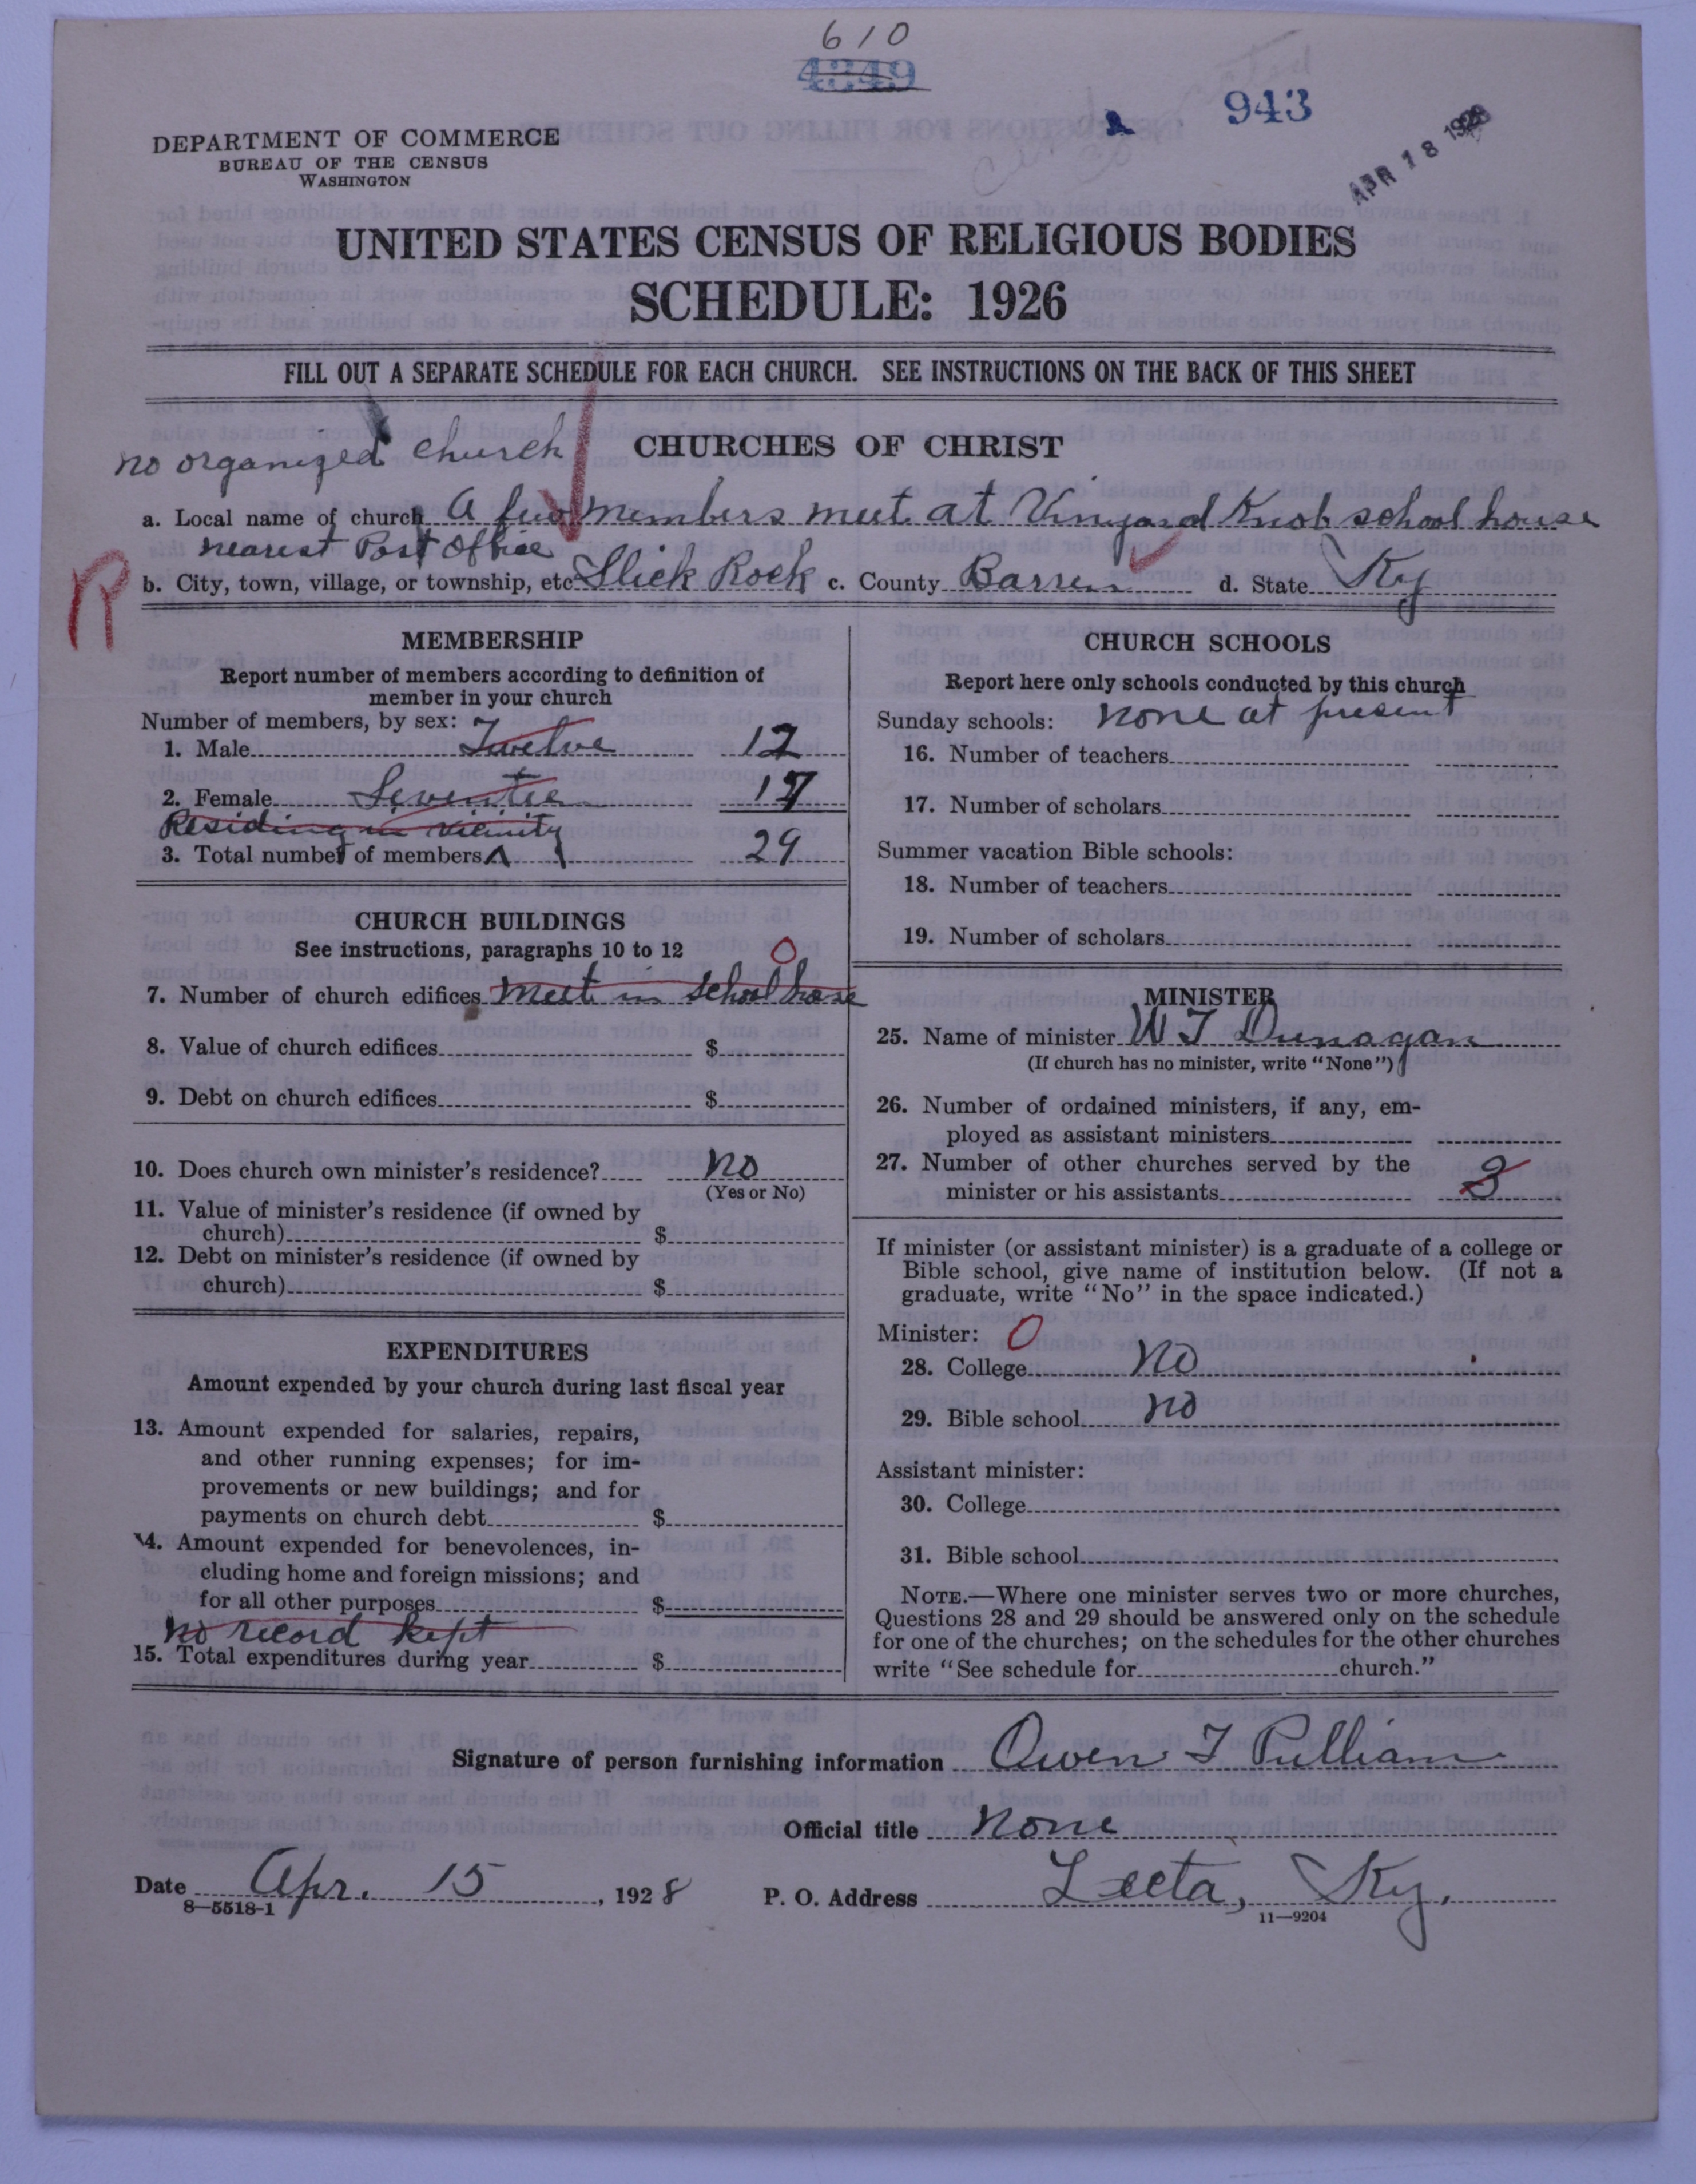 610
4349
943
APR 18 1928
DEPARTMENT OF COMMERCE
BUREAU OF THE CENSUS
WASHINGTON
UNITED STATES CENSUS OF RELIGIOUS BODIES
SCHEDULE: 1926
FILL OUT A SEPARATE SCHEDULE FOR EACH CHURCH. SEE INSTRUCTIONS ON THE BACK OF THIS SHEET
no organized church
CHURCHES OF CHRIST
a. Local name of church A few members meet at Vinyard Knob school house
nearest Post office
R
b. City, town, village, or township, etc Slick Rock c. County Barren d. State Ky
MEMBERSHIP
Report number of members according to definition of
member in your church
Number of members, by sex:
1. Male Twelve 12
2. Female Seventeen 17
Residing in vicinity
3. Total number of members 29
CHURCH BUILDINGS
See instructions, paragraphs 10 to 12
0
7. Number of church edifices meet in school house
8. Value of church edifices $
9. Debt on church edifices $
10. Does church own minister's residence? no
(Yes or No)
11. Value of minister's residence (if owned by
church) $
12. Debt on minister's residence (if owned by
church) $
EXPENDITURES
Amount expended by your church during last fiscal year
13. Amount expended for salaries, repairs,
and other running expenses; for im-
provements or new buildings; and for
payments on church debt $
14. Amount expended for benevolences, in-
cluding home and foreign missions; and
for all other purposes $
no record kept
15. Total expenditures during year $
CHURCH SCHOOLS
Report here only schools conducted by this church
Sunday schools: none at present
16. Number of teachers
17. Number of scholars
Summer vacation Bible schools:
18. Number of teachers
19. Number of scholars
MINISTER
25. Name of minister W T Dunagan
(If church has no minister, write "None")
26. Number of ordained ministers, if any, em-
ployed as assistant ministers
27. Number of other churches served by the
minister or his assistants 3
If minister (or assistant minister) is a graduate of a college or
Bible school, give name of institution below. (If not a
graduate, write "No" in the space indicated.)
Minister: 0
28. College no
29. Bible school no
Assistant minister:
30. College
31. Bible school
NOTE.—Where one minister serves two or more churches,
Questions 28 and 29 should be answered only on the schedule
for one of the churches; on the schedules for the other churches
write "See schedule for church."
Signature of person furnishing information Owen T Pulliam
Official title none
Date Apr. 15, 1928 P. O. Address Lecta, Ky.
8—5518-1
11—9204